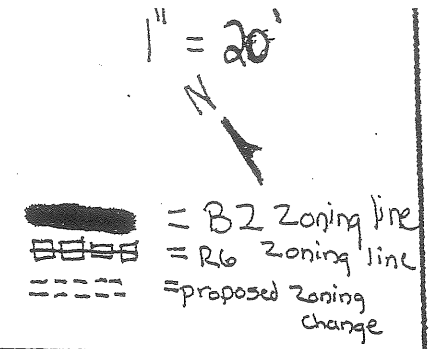 1" = 20'
N
= B2 Zoning line
= R6 Zoning line
= proposed Zoning
change